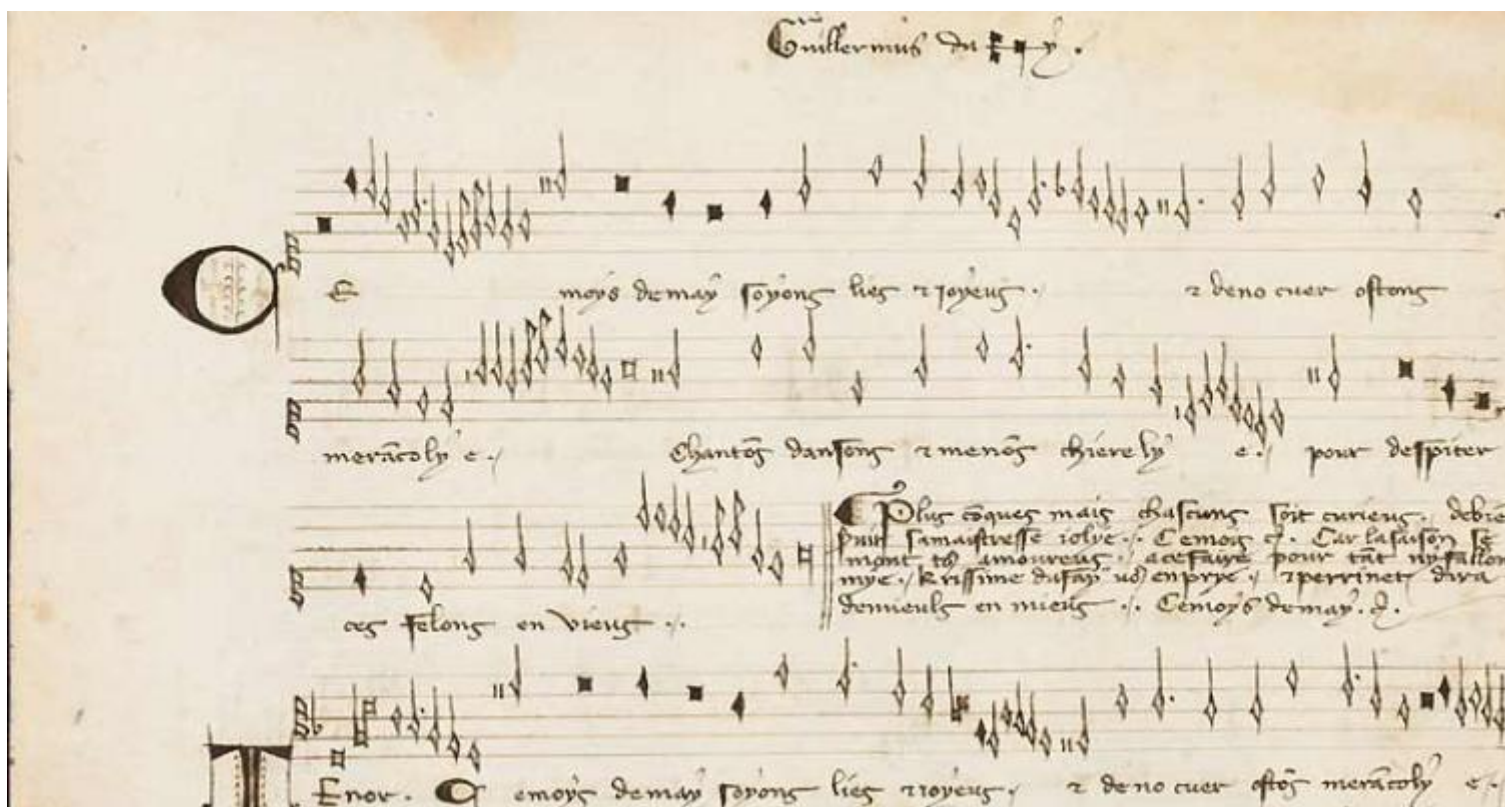 Guillermus du fay.
E moys de may soyons lies et joyeus. et de no cuer ostons
merãcoly e. Chantõs dansons et menõs chiere ly e. pour despiter
ces felons en vieus.
Plus cõques mais chascuns soit curieus. de
servir sa maistresse jolye. Ce mois Car la saison se
mont amoureus. a ce faire pour tãt ny fallon
mye. Krissime dufay en prye. et perrinet dira
de mieuls en mieus. Ce moys de may.
Enor. Ce moys de may soyons lies et joyeus. et de no cuer ostõs merãcoly e.